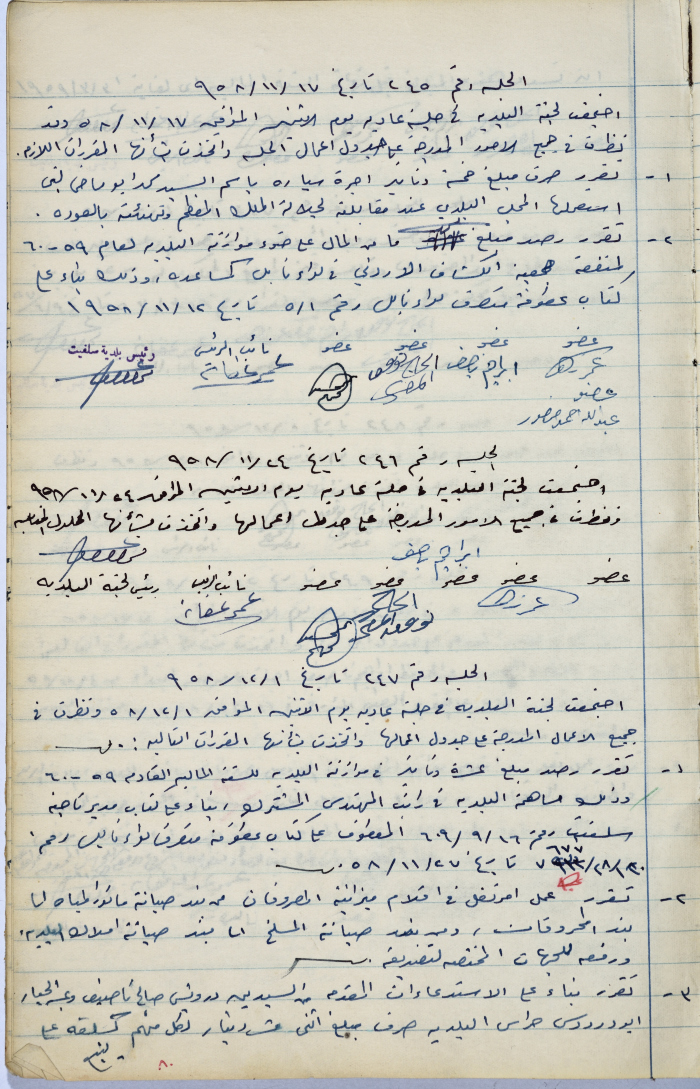 الجلسه رقم ٢٤٥ تاريخ ١٧/١١/٩٥٨
اجتمعت لجنة البلديه في جلسة عاديه يوم الاثنين الموافق ١٧/١١/٥٨ وقد
نظرت في جميع الامور المدرجة على جدول اعمال الجلسه واتخذت بشأنها القرارات اللازمه.
١- تقرر صرف مبلغ خمسة دنانير اجرة سياره باسم السيد محمد ابو ماضي لتي
استعملها المجلس البلدي عند مقابلته لجلالة الملك المعظم وتهنئته بالعوده.
٢- تقرر رصد مبلغ ما من المال على ضوء موازنة البلديه لعام ٥٩-٦٠
لمنفعة جمعية الكشاف الاردني في لواء نابلس كمساعده، وذلك بناء على
كتاب عطوفة متصرف لواء نابلس رقم ٥/١ تاريخ ١٢/١١/١٩٥٨
عضو عضو عضو عضو نائب الرئيس رئيس بلدية سلفيت
ابراهيم الحاج
عضو
عبدالله احمد منصور
الجلسه رقم ٢٤٦ تاريخ ٢٤/١١/٩٥٨
اجتمعت لجنة البلديه في جلسة عاديه يوم الاثنين الموافق ٢٤/١١/٩٥٨
ونظرت في جميع الامور المدرجة على جدول اعمالها واتخذت بشأنها الحلول
ابراهيم
عضو عضو عضو عضو عضو نائب الرئيس رئيس لجنة البلديه
الحاج
الجلسه رقم ٢٤٧ تاريخ ١/١٢/٩٥٨
اجتمعت لجنة البلديه في جلسة عاديه يوم الاثنين الموافق ١/١٢/٥٨ ونظرت في
جميع الاعمال المدرجة على جدول اعمالها واتخذت بشأنها القرارات التاليه:
١- تقرر رصد مبلغ عشرة دنانير في موازنة البلديه للسنة الماليه القادمه ٥٩-٦٠
وذلك مساهمة البلديه في راتب المهندس المشترك، بناء على كتاب مدير ناحية
سلفيت رقم ٩/١٦/٦٠٩ المعطوف على كتاب عطوفة متصرف لواء نابلس رقم
٦٧٧
تاريخ ٢٧/١١/٥٨
٢- تقرر عمل امر نقل في اقلام ميزانية المصروفات من بند صيانة ماتور المياه الى
بند المحروقات، ومن بند صيانة المسلخ الى بند صيانة املاك البلديه.
ورفعه للجهات المختصه لتصديقه
٣- تقرر بناء على الاستدعاءات المقدمه من السيدين درويش صالح ناصيف وعبد الجبار
ابو دردوس حراس البلديه صرف مبلغ اثنى عشر دينار لكل منهم كسلفه على
يتبع
٨٠